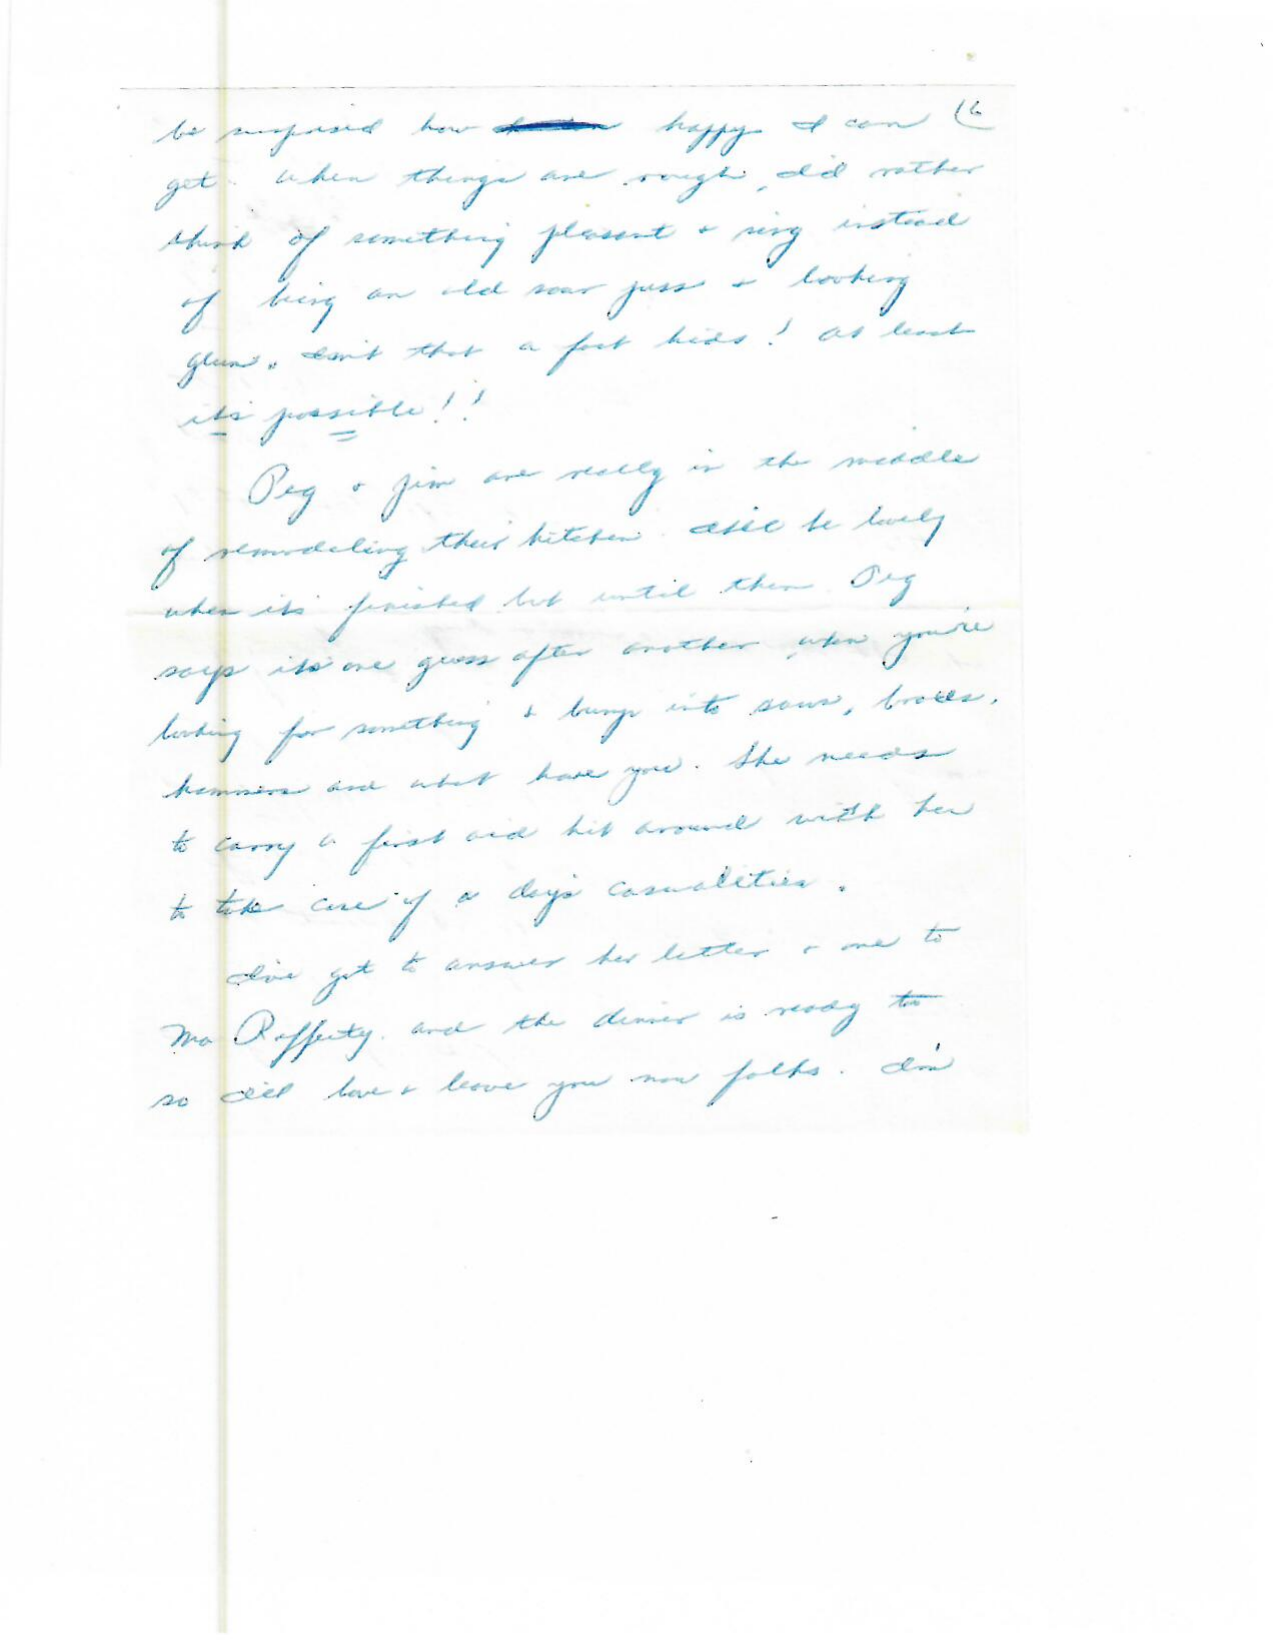 6
be surprised how happy I can
get. When things are rough, I'd rather
think of something pleasant + sing instead
of being an old sour puss + looking
glum. Isn't that a fact kids! At least
it's possible!!
Peg + Jim are really in the middle
of remodeling their kitchen. It'll be lovely
when its finished but until then Peg
says its one guess after another when you're
looking for something + bump into saws, braces,
hammers and what have you. She needs
to carry a first aid kit around with her
to take care of a day's casualities.
I've got to answer her letter + one to
Ma Rafferty. and the dinner is ready too
so I'll love + leave you now folks. I'm